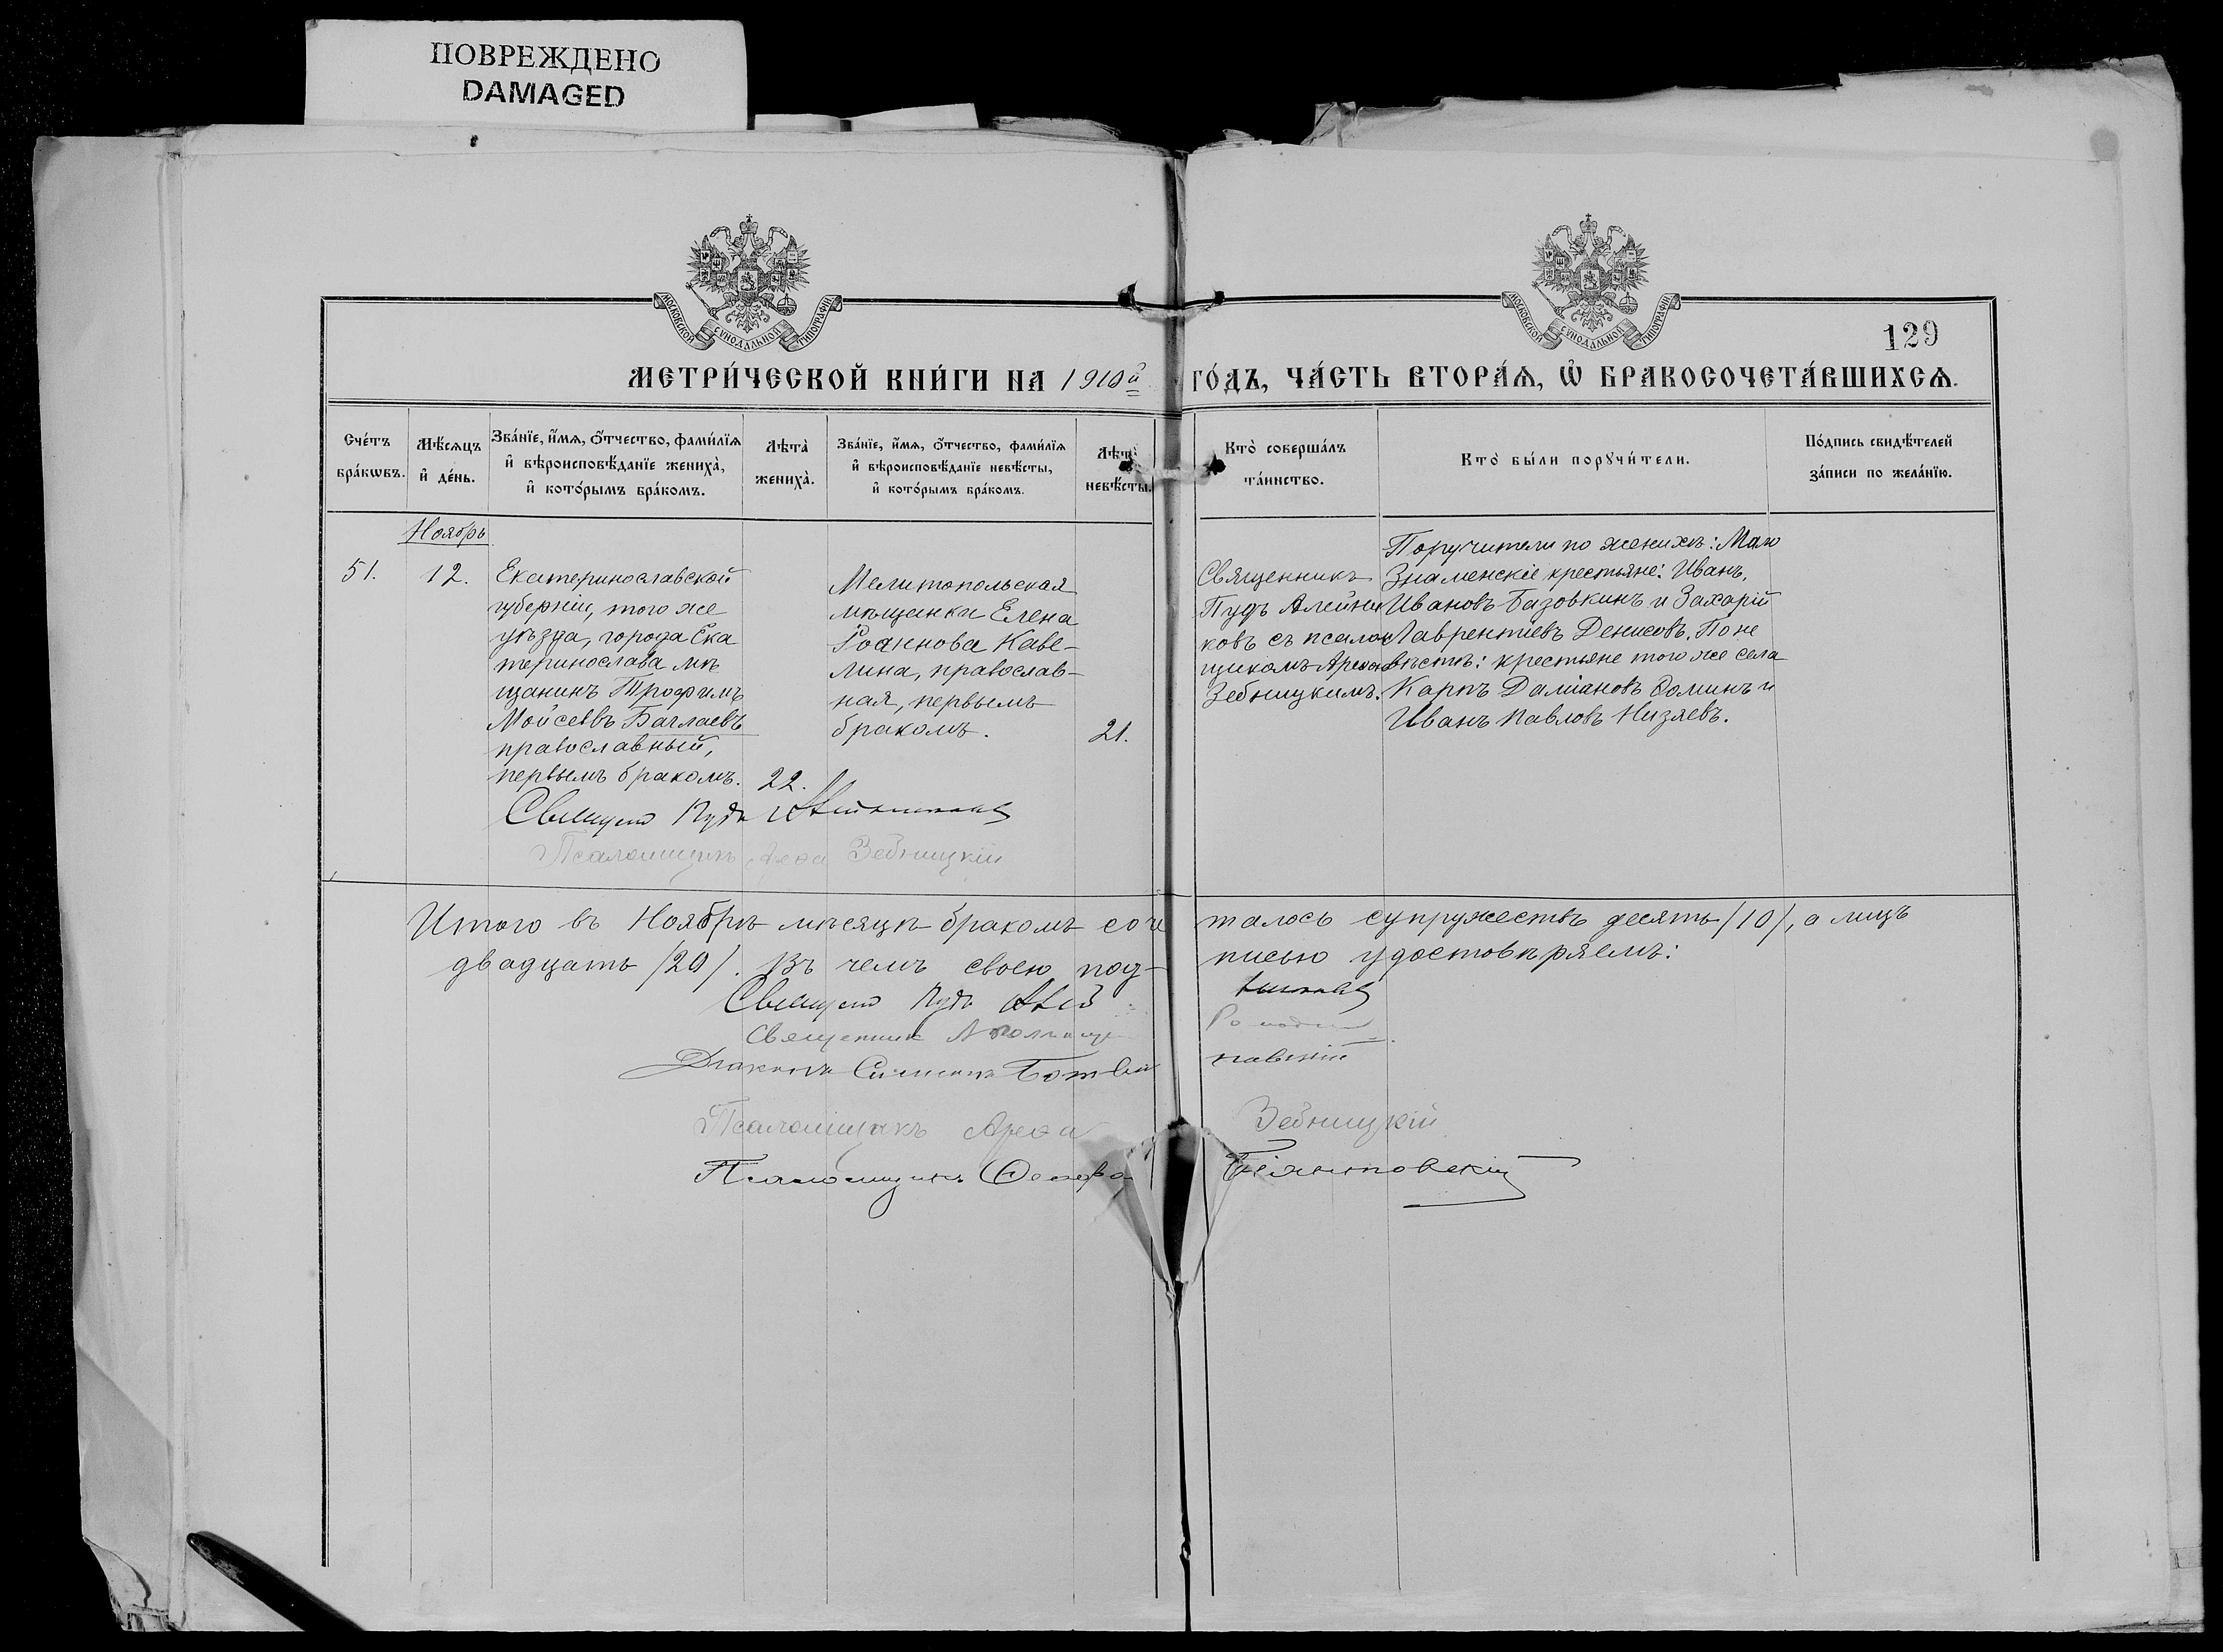 ПОВРЕЖДЕНО
DAMAGED
МОСКОВСКОЙ СѴНОДАЛЬНОЙ ТИПОГРАФІИ
МОСКОВСКОЙ СѴНОДАЛЬНОЙ ТИПОГРАФІИ
129
МЕТРИ́ЧЕСКОЙ КНИ́ГИ НА 1910й ГО́ДЪ, ЧА́СТЬ ВТОРА́Ѧ, Ѡ҆ БРАКОСОЧЕТА́ВШИХСѦ.
Сче́тъ бра́кѡвъ.
Мѣ́сѧцъ и҆ де́нь.
Зва́нїе, и҆́мѧ, ѻ҆́тчество, фами́лїѧ
и҆ вѣроисповѣ́данїе жениха̀,
и҆ кото́рымъ бра́комъ.
Лѣта̀ жениха̀.
Зва́нїе, и҆́мѧ, ѻ҆́тчество, фами́лїѧ
и҆ вѣроисповѣ́данїе невѣ́сты,
и҆ кото́рымъ бра́комъ.
Лѣта̀ невѣ́сты.
Кто̀ соверша́лъ
та́инство.
Кто̀ бы́ли порꙋчи́тели.
По́дпись свидѣ́телей
за́писи по жела́нїю.
Ноябрь
51.
12.
Екатеринославской
губерніи, того же
уѣзда, города Ека
теринослава мѣ
щанинъ Трофимъ
Мойсеевъ Баглаевъ
православный,
первымъ бракомъ.
22.
Мелитопольская
мѣщанка Елена
Іоаннова Каве-
лина, православ-
ная, первымъ
бракомъ.
21.
Священникъ
Пудъ Алейни
ковъ съ псалом
щикомъ Арефою
Зебницкимъ.
Поручители по женихѣ: Мало
Знаменскіе крестьяне: Иванъ
Ивановъ Базовкинъ и Захарій
Лаврентіевъ Денисовъ. По не
вѣстѣ: крестьяне того же села
Карпъ Даміановъ Ѳоминъ и
Иванъ Павловъ Низяевъ.
Священ Пудъ Алейниковъ
Псаломщикъ Арефа Зебницкій
Итого въ Ноябрѣ мѣсяцѣ бракомъ соче талось супружествъ десять /10/, а лицъ
двадцать /20/. Въ чемъ своею под- писью удостовѣряемъ:
Священ Пудъ Алей никовъ
Священник
Діаконъ Симеонъ Ботви новскій
Псаломщикъ Арефа Зебницкій
Псаломщикъ